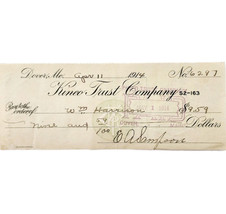 Dover, Me. Apr 11 1914 No. 6297
Kineo Trust Company 52-163
Pay to the order of Wm Harrison $9.59
Nine and 59/100 Dollars